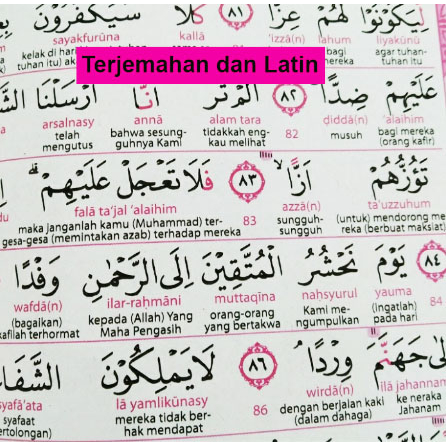 لِيَكُوْنُوْا لَهُمْ عِزًّا ٨١ كَلَّا سَيَكْفُرُوْنَ
liyakūnū lahum ‘izzā(n) kallā sayakfurūna
agar tuhan- bagi kelak di hari
tuhan itu mereka tuhan itu)
Terjemahan dan Latin
عَلَيْهِمْ ضِدًّا ٨٢ اَلَمْ تَرَ اَنَّآ اَرْسَلْنَا
‘alaihim ḍiddā(n) 82 alam tara annā arsalnasy
bagi mereka musuh tidakkah eng- bahwa sesung- telah
(orang kafir) kau melihat guhnya Kami mengutus
تَؤُزُّهُمْ اَزًّا ٨٣ فَلَا تَعْجَلْ عَلَيْهِمْ
ta'uzzuhum azzā(n) 83 falā ta‘jal ‘alaihim
(untuk) mendorong me sungguh- maka janganlah kamu (Muhammad) ter-
reka (berbuat maksiat) sungguh gesa-gesa (memintakan azab) terhadap mereka
٨٤ يَوْمَ نَحْشُرُ الْمُتَّقِيْنَ اِلَى الرَّحْمٰنِ وَفْدًا
84 yauma naḥsyurul muttaqīna ilar-raḥmāni wafdā(n)
(ingatlah) Kami me- orang-orang kepada (Allah) Yang (bagaikan)
pada hari ngumpulkan yang bertakwa Maha Pengasih kafilah terhormat
اِلٰى جَهَنَّمَ وِرْدًا ٨٦ لَا يَمْلِكُوْنَ
ilā jahanam wirdā(n) 86 lā yamlikūnasy syafā‘ata
ke neraka dengan berjalan kaki mereka tidak ber- syafaat
Jahanam (dalam dahaga) hak mendapat